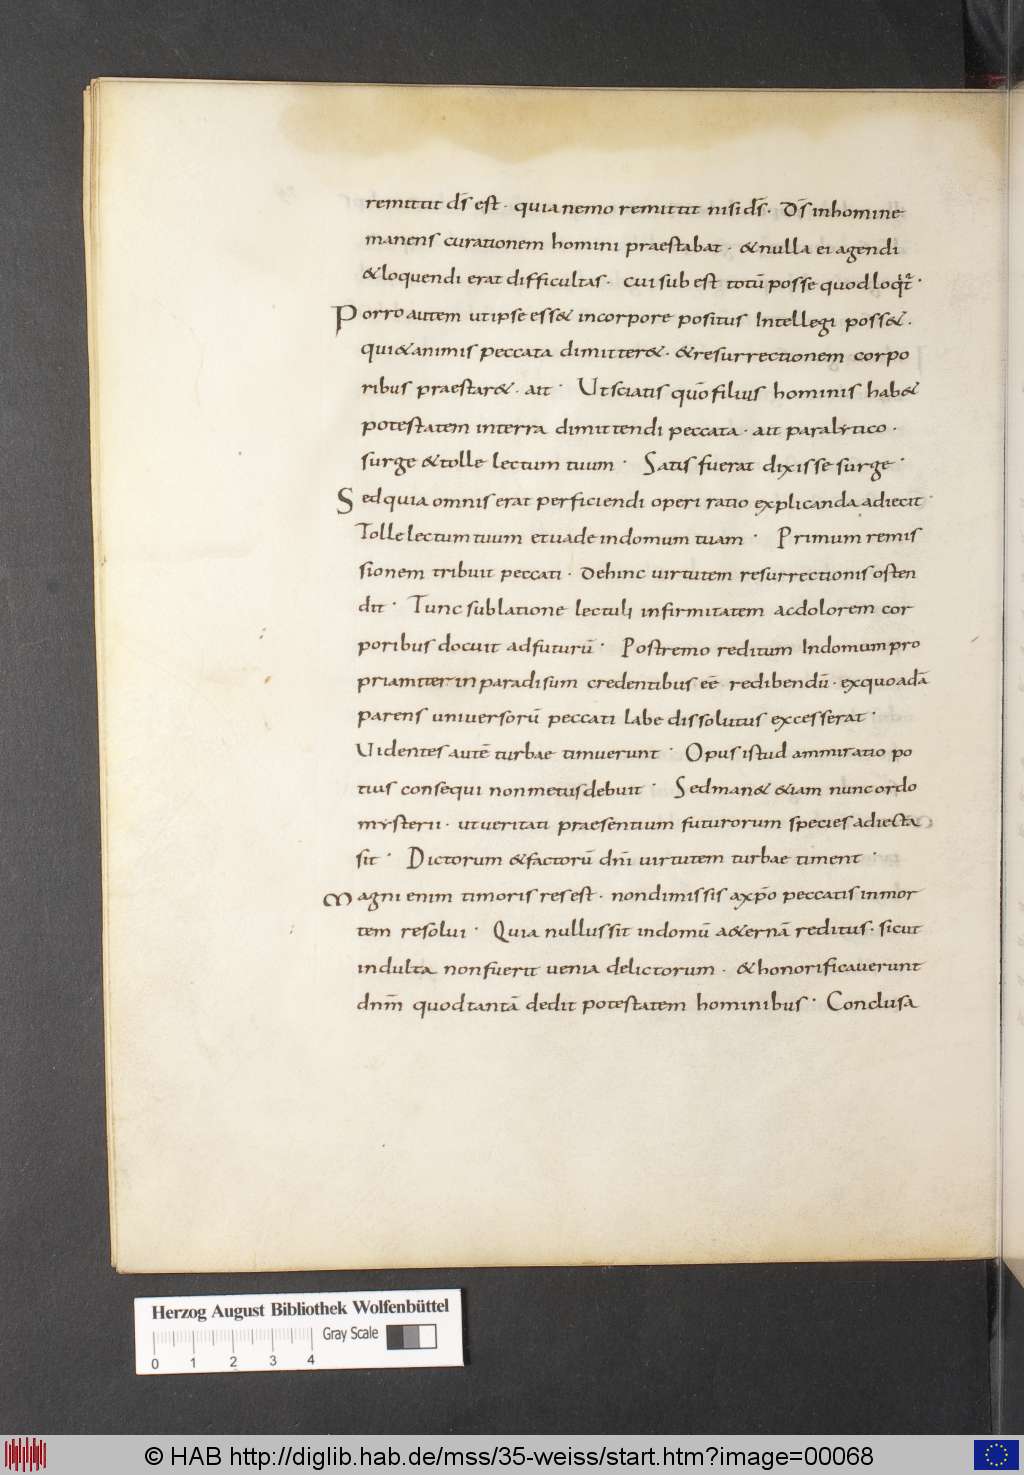 remittit ds̄ est · quia nemo remittit nisi ds̄ · Ds̄ inhomine
manens curationem homini praestabat · & nulla ei agendi
& loquendi erat difficultas · cui sub est totū posse quod loqt̄ ·
Porro autem ut ipse ess& incorpore positus Intellegi poss& ·
qui & animis peccata dimitter& · & resurrectionem corpo
ribus praestar& · ait · Ut sciatis qūo filius hominis hab&
potestatem interra dimittendi peccata · ait paralytico ·
surge & tolle lectum tuum · Satis fuerat dixisse surge ·
Sed quia omnis erat perficiendi operi ratio explicanda adiecit ·
Tolle lectum tuum et uade indomum tuam · Primum remis
sionem tribuit peccati · Dehinc uirtutem resurrectionis osten
dit · Tunc sublatione lectuli infirmitatem ac dolorem cor
poribus docuit adfuturū · Postremo reditum Indomum pro
priam iter in paradisum credentibus eē redibendū · ex quo adā
parens uniuersorū peccati labe dissolutus excesserat ·
Uidentes autē turbae timuerunt · Opus istud ammiratio po
tius consequi non metus debuit · Sed man& &iam nunc ordo
mysterii · ut ueritati praesentium futurorum species adiecta
sit · Dictorum & factorū dnī uirtutem turbae timent ·
Magni enim timoris res est · non dimissis a xp̄o peccatis inmor
tem resolui · Quia nullus sit indomū a&ernā reditus · sicut
indulta non fuerit uenia delictorum · & honorificauerunt
dnm̄ quod tantā dedit potestatem hominibus · Conclusa
Herzog August Bibliothek Wolfenbüttel
Gray Scale
0 1 2 3 4
© HAB http://diglib.hab.de/mss/35-weiss/start.htm?image=00068